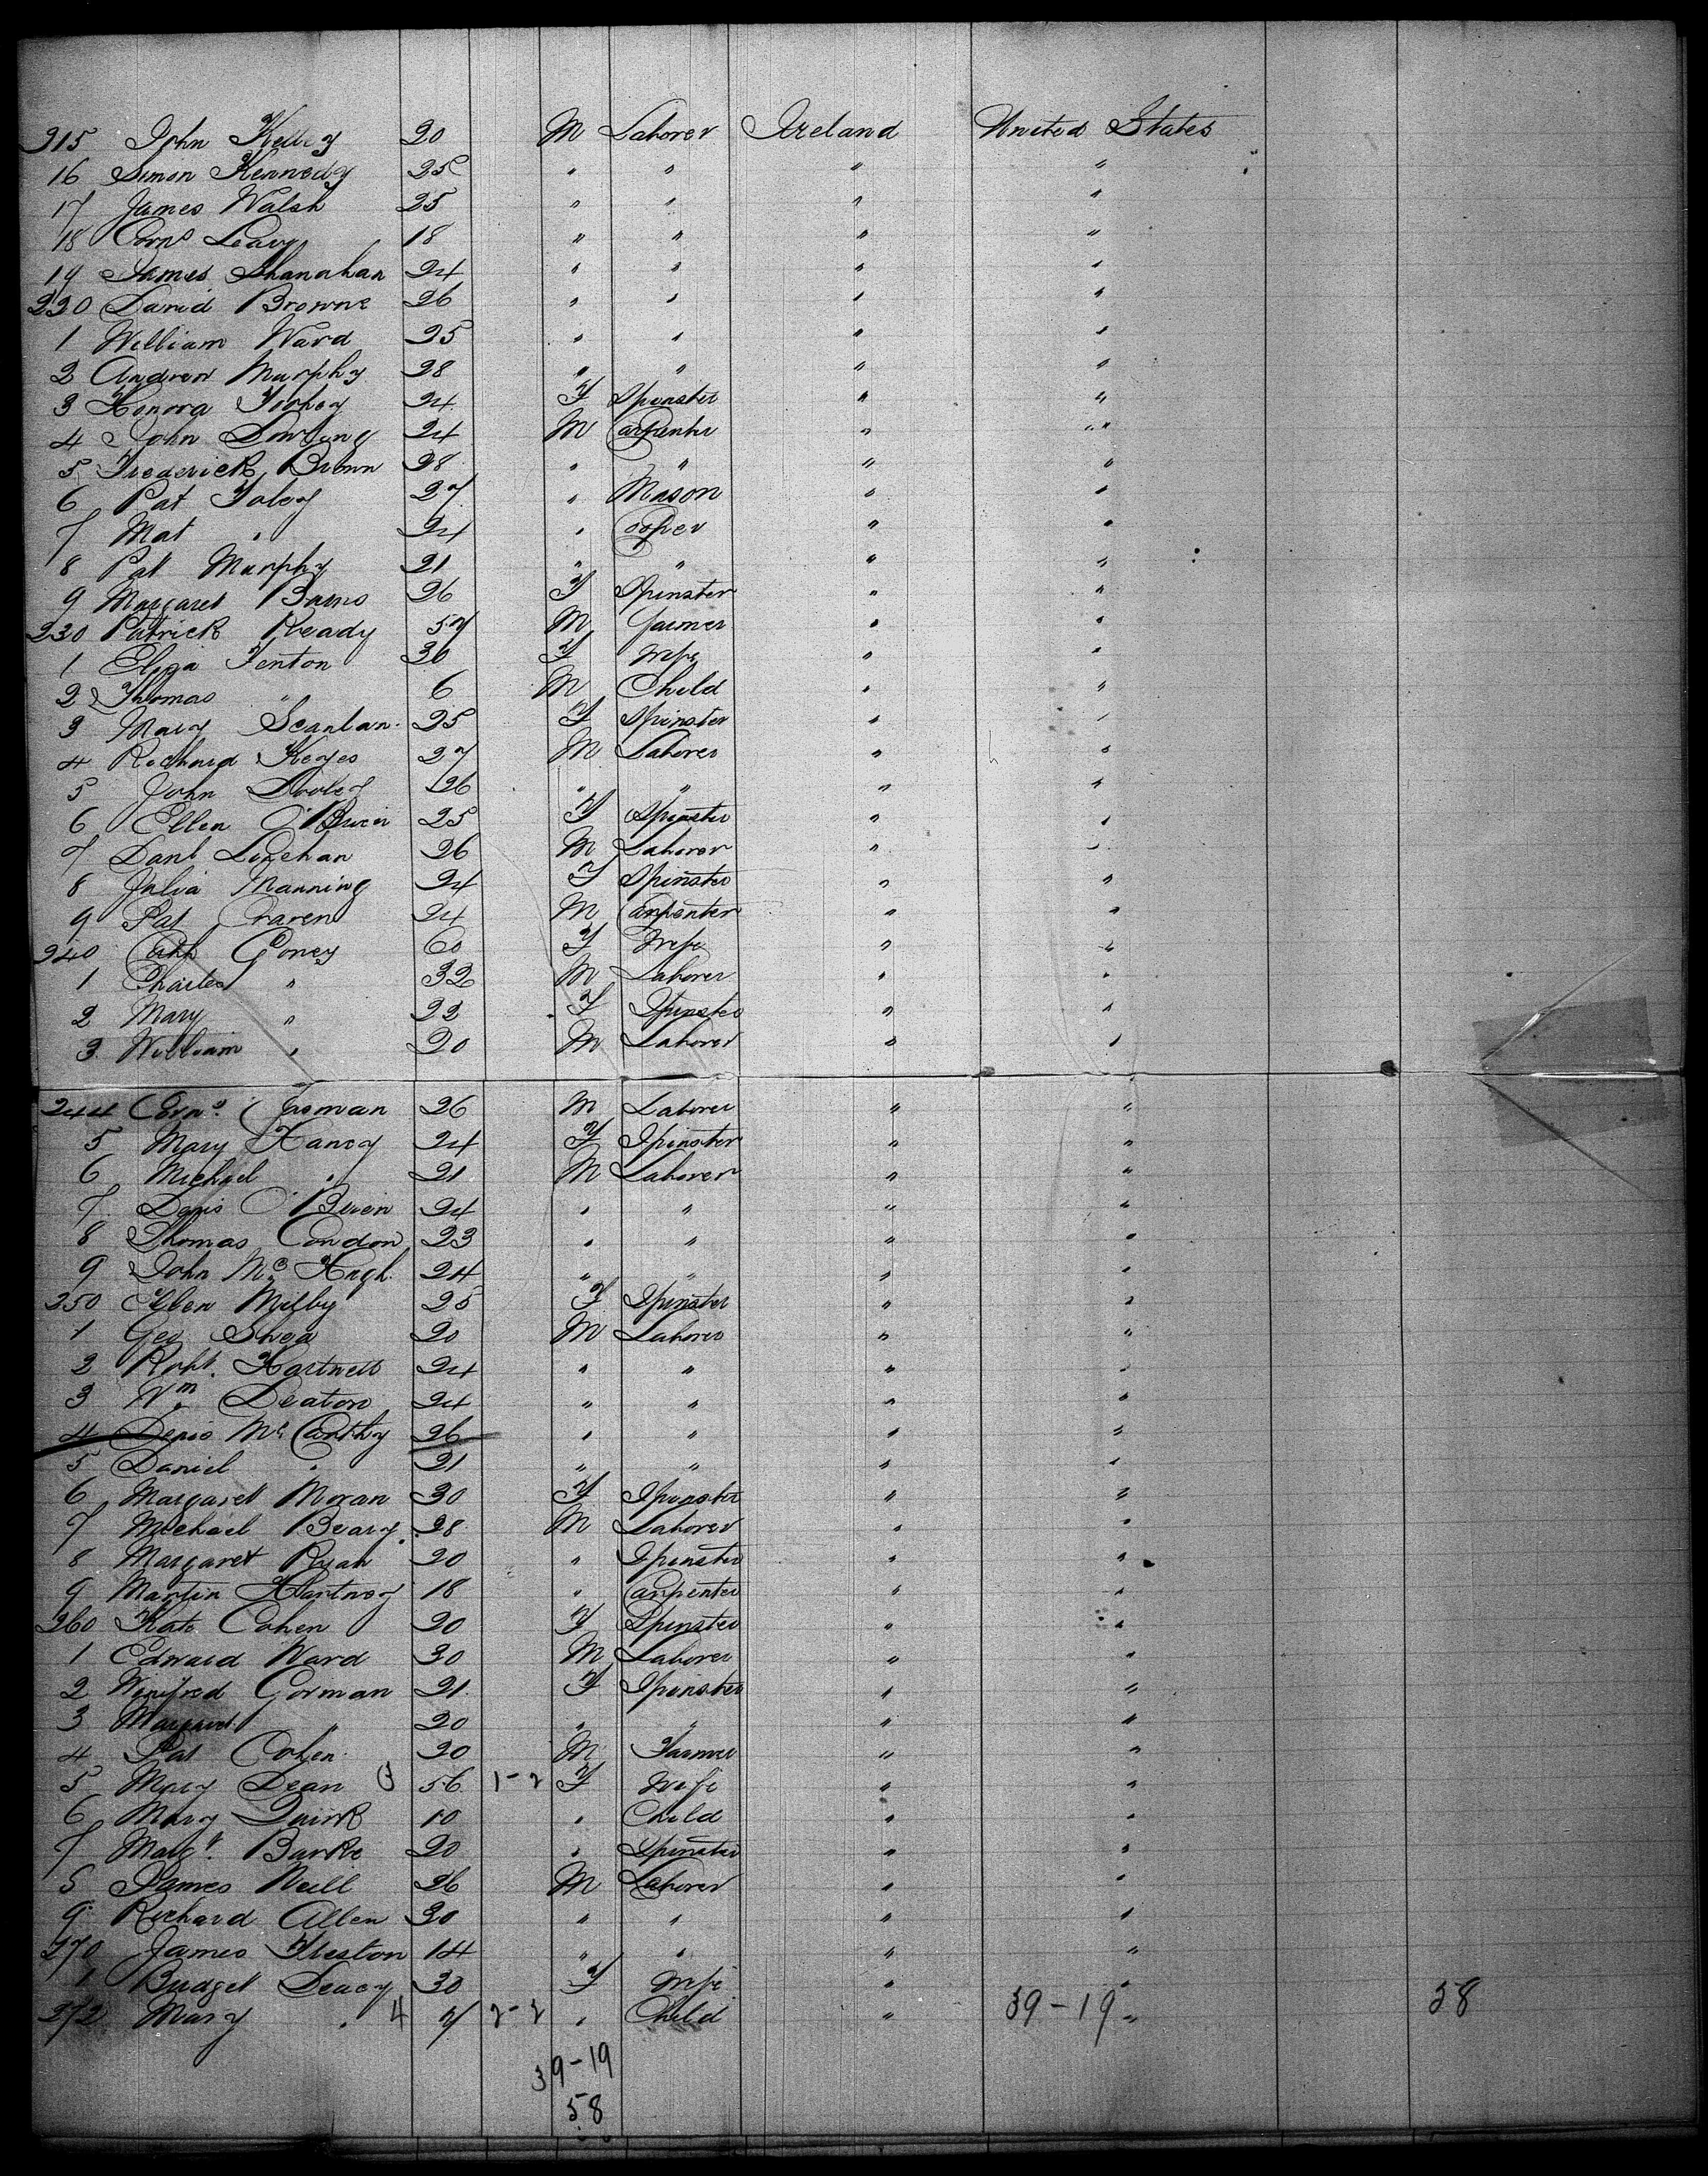 215 John Kelley 20 M Laborer Ireland United States
16 Simon Kennedy 25 " " " "
17 James Walsh 25 " " " "
18 Corns Leary 18 " " " "
19 James Shanahan 24 " " " "
220 David Browne 26 " " " "
1 William Ward 25 " " " "
2 Andrew Murphy 28 " " " "
3 Honora 24 F Spinster " "
4 John Dowling 24 M Carpenter " "
5 Frederick Brown 28 " " " "
6 Pat Foley 27 " Mason " "
7 Mat " 24 " Cooper " "
8 Pat Murphy 21 " " " "
9 Margaret Barns 26 F Spinster " "
230 Patrick Ready 57 M farmer " "
1 Eliza Fenton 30 F Wife " "
2 Thomas " 6 M Child " "
3 Mary Scanlan 25 F Spinster " "
4 Richard Keyes 27 M Laborer " "
5 John Dooley 26 " " " "
6 Ellen O'Brien 25 F Spinster " "
7 Danl Linehan 26 M Laborer " "
8 Julia Manning 24 F Spinster " "
9 Pat Craven 24 M Carpenter " "
240 Cath Goney 60 F Wife " "
1 Charles " 32 M Laborer " "
2 Mary " 22 F Spinster " "
3 William " 20 M Laborer " "
244 Corns 26 M Laborer " "
5 Mary Haney 24 F Spinster " "
6 Michael " 21 M Laborer " "
7 Denis O'Brien 24 " " " "
8 Thomas Condon 23 " " " "
9 John Mc Hugh 24 " " " "
250 Ellen Melby 25 F Spinster " "
1 Geo Shea 20 M Laborer " "
2 Robt. Hartnett 24 " " " "
3 Wm Deaton 24 " " " "
4 Denis Mc Carthy 26 " " " "
5 Daniel " 21 " " " "
6 Margaret Moran 30 F Spinster " "
7 Michael Beary 28 M Laborer " "
8 Margaret Ryan 20 " Spinster " "
9 Martin Hartney 18 " Carpenter " "
260 Kate Cohen 20 F Spinster " "
1 Edward Ward 30 M Laborer " "
2 Winifred Gorman 21 F Spinster " "
3 Margaret " 20 " " " "
4 Pat Cohen 20 M Farmer " "
5 Mary Dean 56 1-2 F Wife " "
6 Mary Quirk 10 " Child " "
7 Margt. Burke 20 " Spinster " "
8 James Neill 26 M Laborer " "
9 Richard Allen 30 " " " "
270 James 14 " " " "
1 Bridget Deacy 30 F Wife " "
272 Mary " 4 7 2-2 " Child " 39-19 " 58
39-19
58